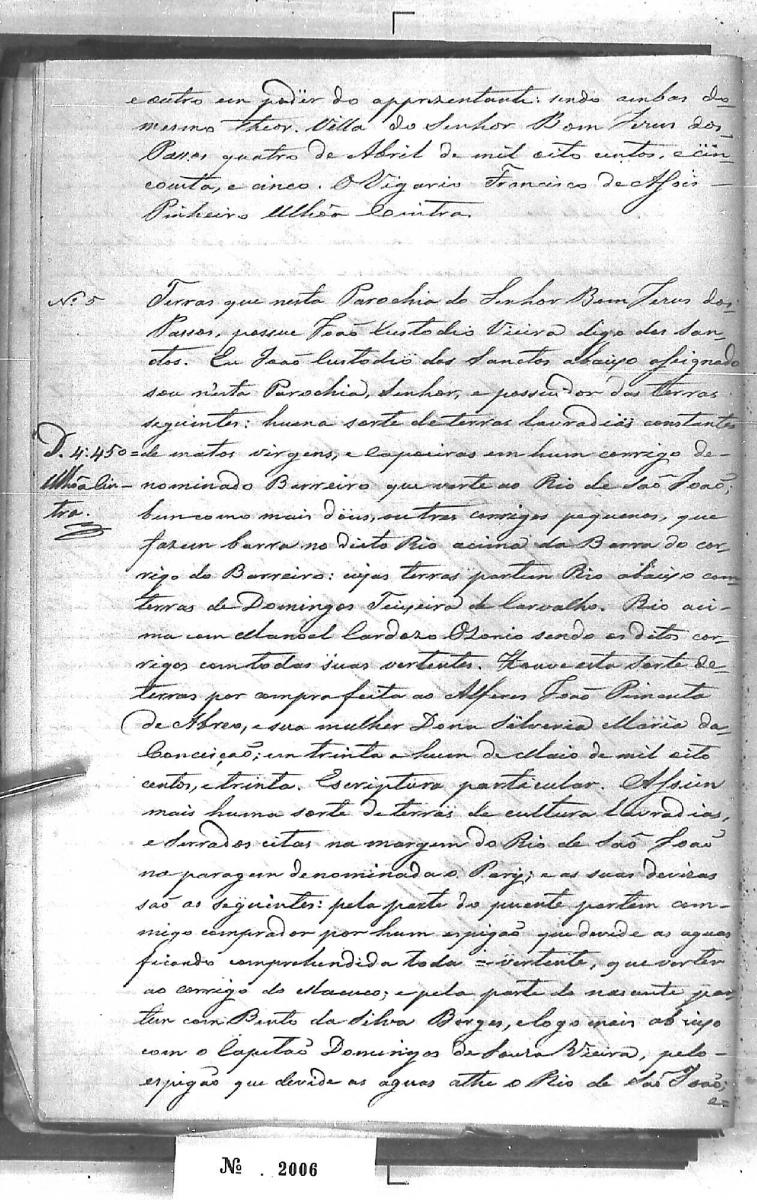 e outro em poder do apprezentante: sendo ambas do
mesmo theor. Villa do Senhor Bom Jezus dos
Passos quatro de Abril de mil oito centos, e cin-
coenta, e cinco. O Vigario Francisco de Assis
Pinheiro Ulhôa Cintra.
Nº 5 Terras que nesta Parochia do Senhor Bom Jezus dos
Passos, possue João Custodio Vieira digo dos San-
tos. Eu João Custodio dos Sanctos abaixo assignado
sou n'esta Parochia, Senhor, e possuidor das terras
seguintes: huma sorte de terras lavradias constantes
D. 4:450= de matos virgens, e capoeiras em hum corrigo de-
Ulhôa Cin- nominado Barreiro que verte ao Rio de São João;
tra. bem como mais dous, outros corrigos pequenos, que
fazem barra no dicto Rio acima da Barra do cor-
rigo do Barreiro: cujas terras partem Rio abaixo com
terras de Domingos Teixeira de Carvalho. Rio aci-
ma com Manoel Cardozo Ozorio sendo os ditos cor-
rigos com todas suas vertentes. Houve esta sorte de
terras por compra feita ao Alferes João Pimenta
de Abreo, e sua mulher Dona Silveria Maria da
Conceição; em trinta e hum de Maio de mil oito
centos, e trinta. Escriptura particular. Assim
mais huma sorte de terras de cultura lavradias,
e serrados citas na margem do Rio de São João
na paragem denominada o Pary; e as suas devizas
são as seguintes: pela parte do puente partem com-
migo comprador por hum espigão que devide as aguas
ficando comprehendida toda = vertente, que verter
ao corrigo do Macuco; e pela parte do nascente par-
tem com Bento da Silva Borges, e logo mais abaixo
com o Capitão Domingos de Souza Vieira, pelo
espigão que devide as aguas athe o Rio de São João;
e=
Nº . 2006